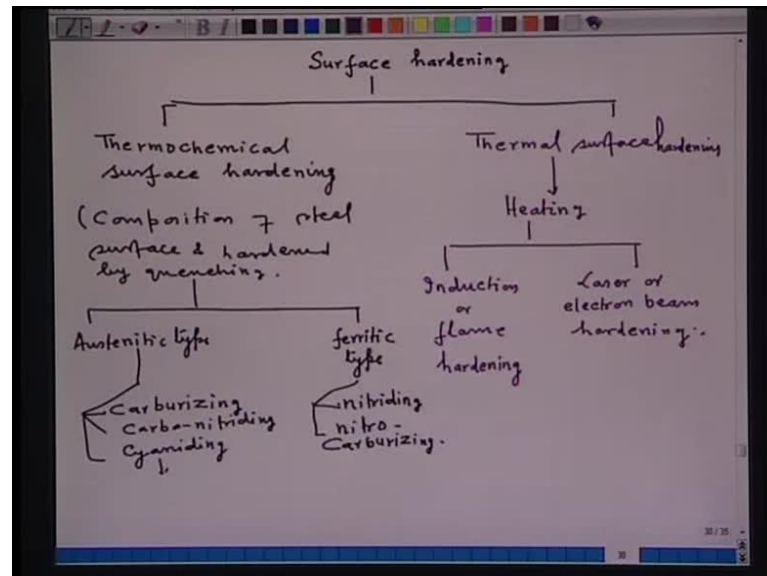 B I
Surface hardening
Thermochemical
surface hardening
(Composition of steel
surface & hardened
by quenching.
Austenitic type
Carburizing
Carbo-nitriding
Cyaniding
ferritic
type
nitriding
nitro-
Carburizing.
Thermal surface hardening
Heating
Induction
or
flame
hardening
Laser or
electron beam
hardening.
30/35
30